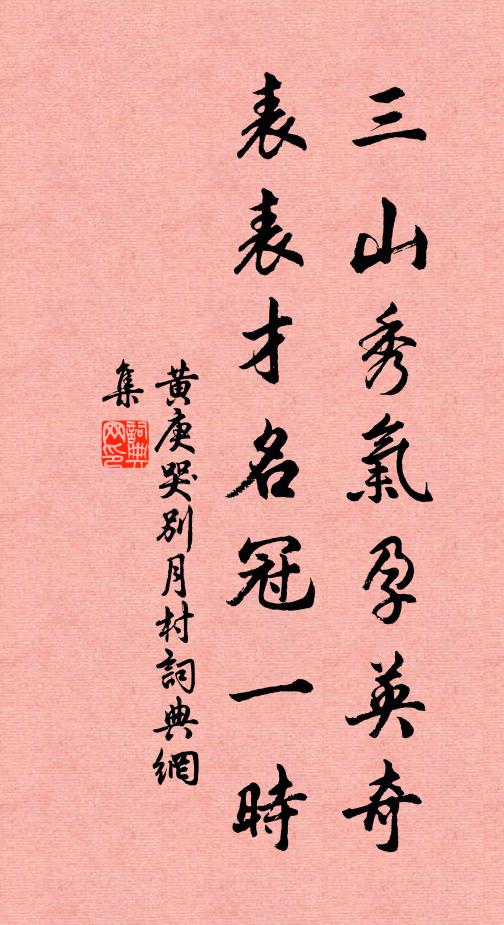 三山秀氣孕英奇
表表才名冠一時
黃庚哭別月村詞典網
集
詞典
网印